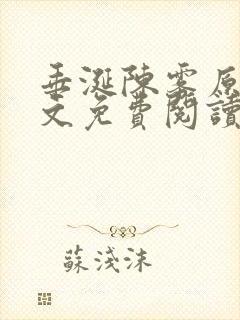 垂涎陳霧原
文免費閱讀
蘇淺沫